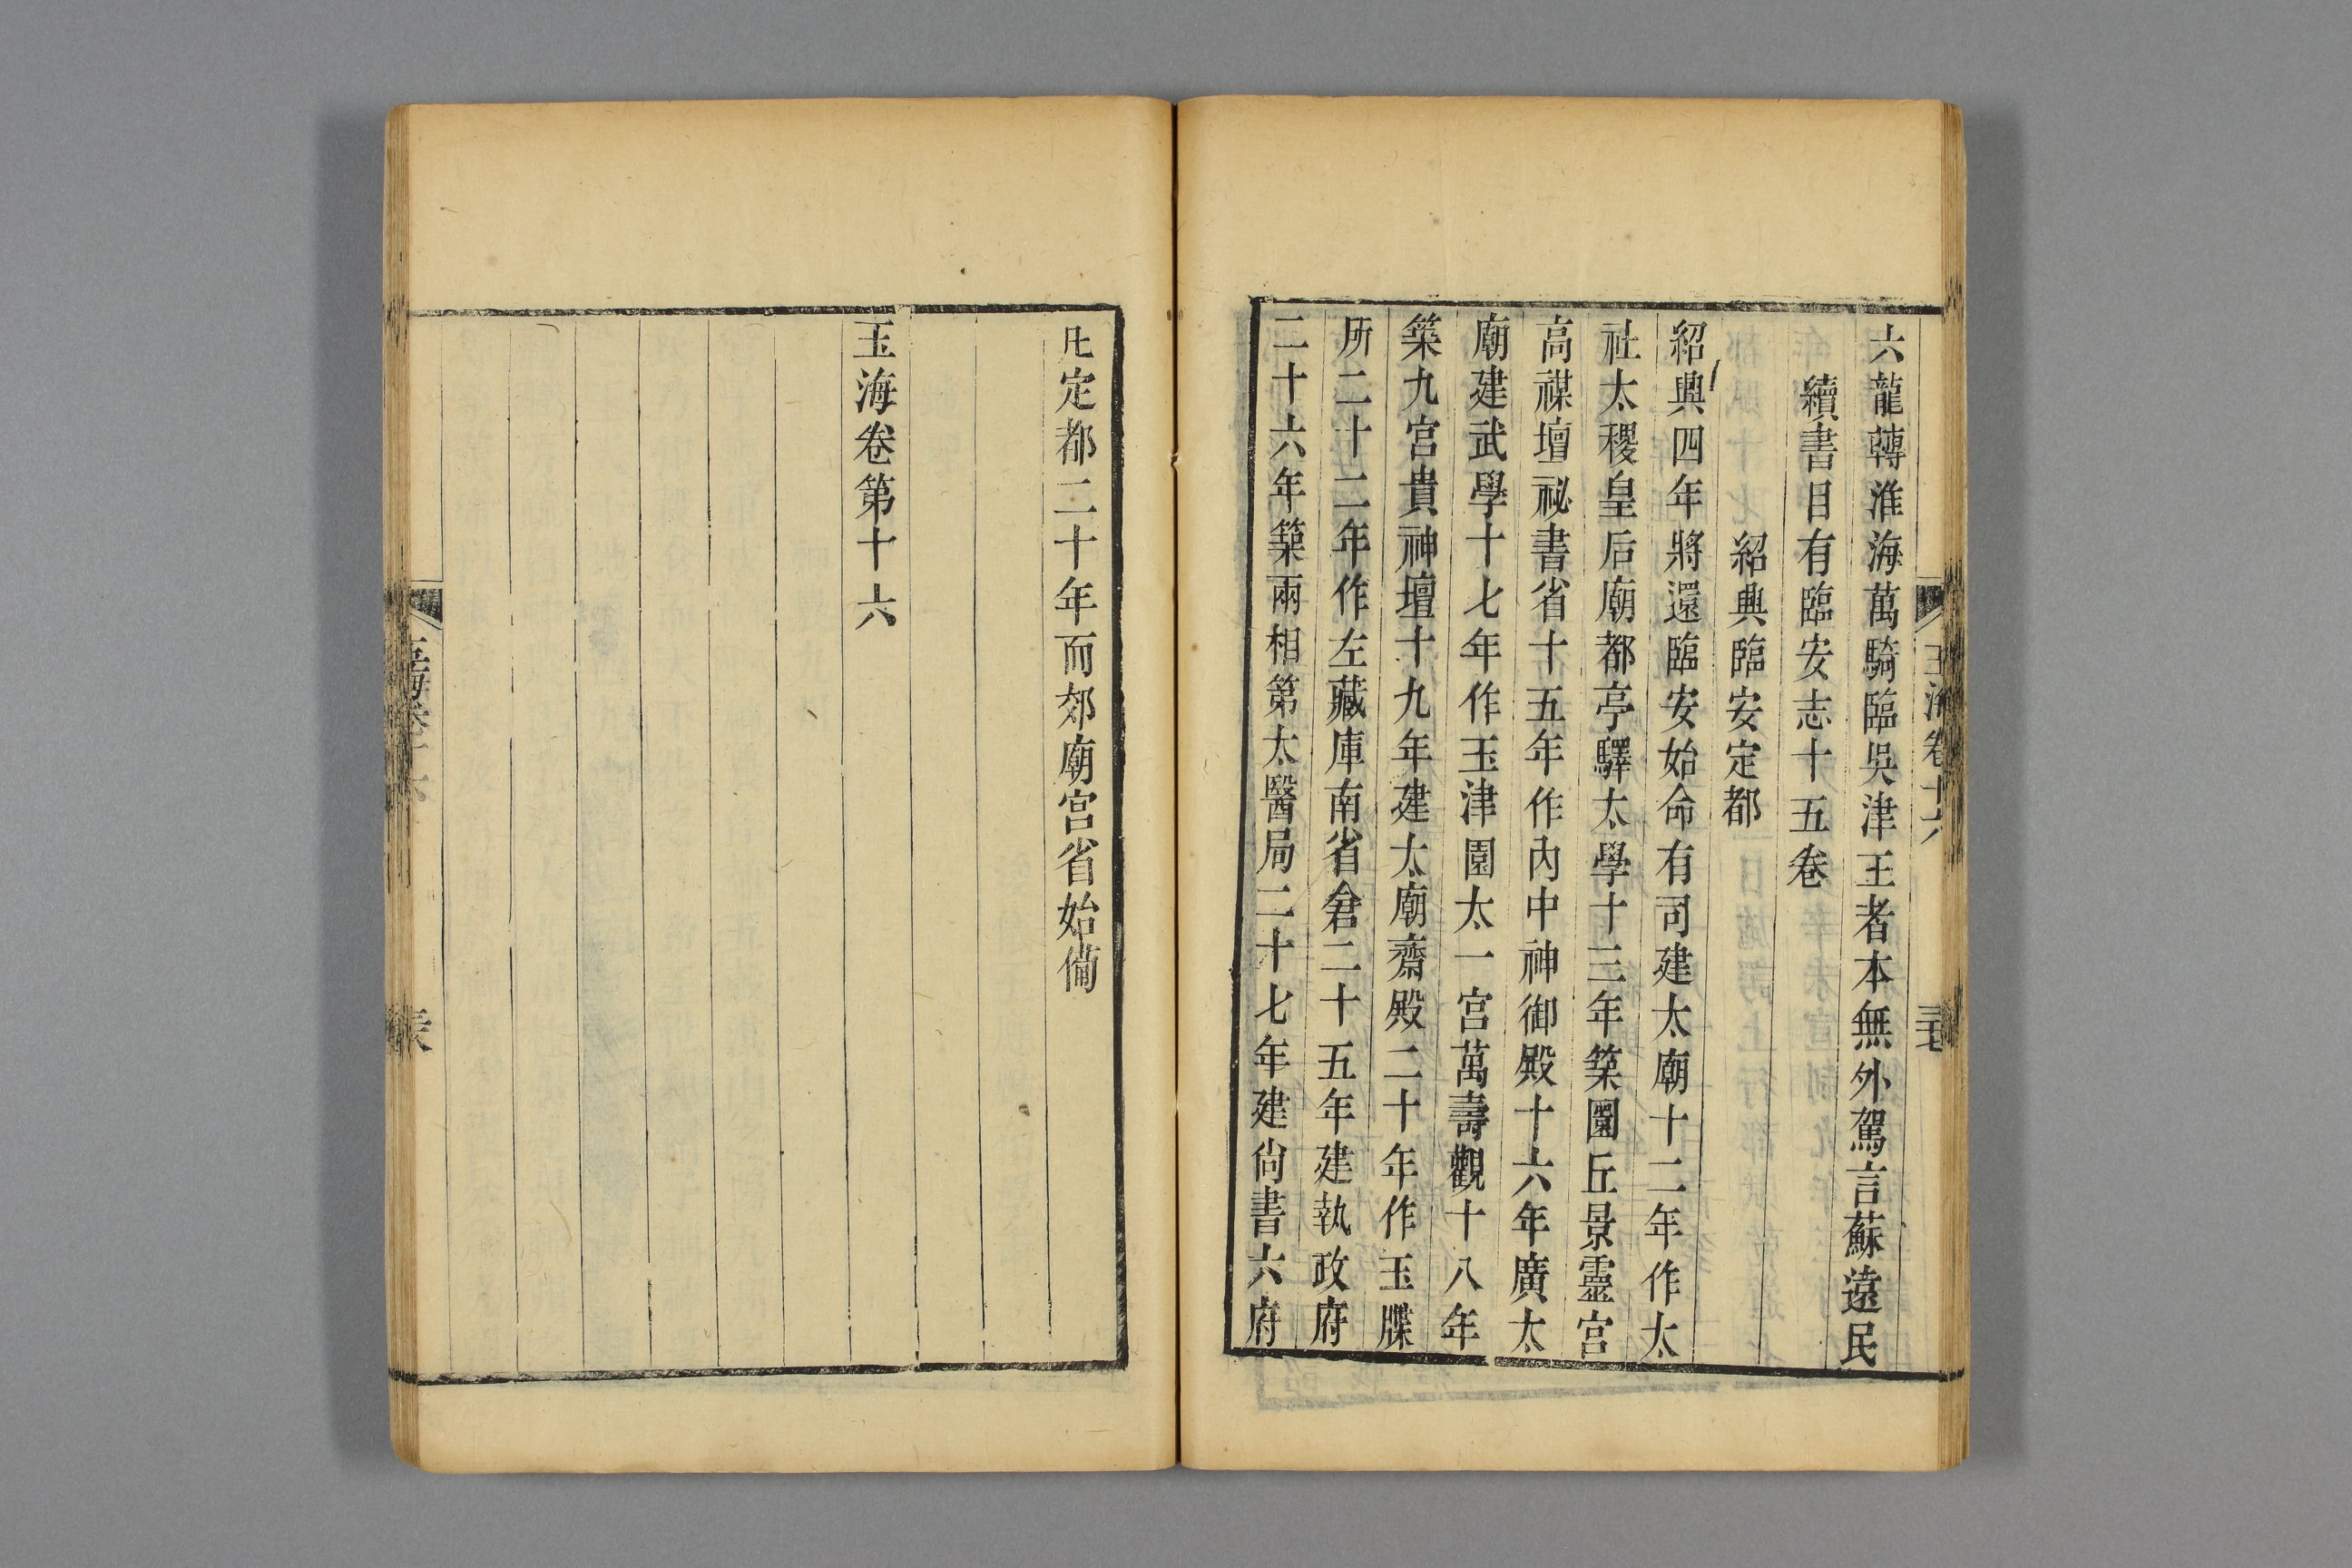 六龍轉淮海萬騎臨吳津王者本無外駕言蘇遠民
續書目有臨安志十五卷
紹興臨安定都
紹興四年將還臨安始命有司建太廟十二年作太
社太稷皇后廟都亭驛太學十三年築圜丘景靈宮
高禖壇祕書省十五年作內中神御殿十六年廣太
廟建武學十七年作玉津園太一宮萬壽觀十八年
築九宮貴神壇十九年建太廟齋殿二十年作玉牒
所二十二年作左藏庫南省倉二十五年建執政府
二十六年築兩相第太醫局二十七年建尙書六府
凡定都二十年而郊廟宮省始備
玉海卷第十六
玉海卷十六